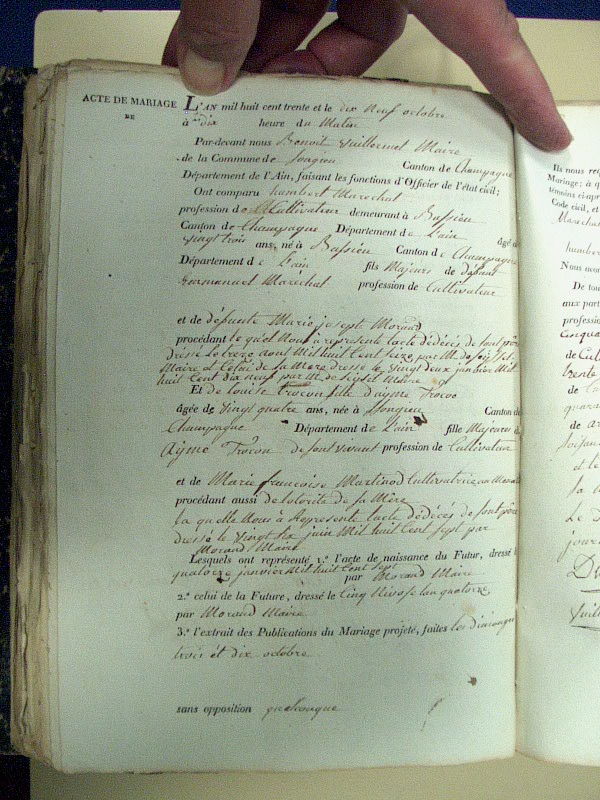 ACTE DE MARIAGE
DE
L'AN mil huit cent trente et le dix Neuf octobre
à dix heure du Matin
Par-devant nous Benoit Guillermet Maire
de la Commune de Songieu Canton de Champagne
Département de l'Ain, faisant les fonctions d'Officier de l'état civil;
Ont comparu humbert Marechal
profession de Cultivateur demeurant à Bassieu
Canton de Champagne Département de L'ain âgé de
vingt trois ans, né à Bassieu Canton de Champagne
Département de L'ain fils Majeure de défunt
Emmanuel Maréchal profession de Cultivateur
et de défunte Marie josepte Morand
procédant le quel Nous à représenté lacte dédécés de sont père
dressé Le treze aout Mil huit Cent Seize, par M. de
Maire et Celui de sa Mere dressé le vingt deux janvier Mil
huit Cent dix neuf par M. de Maire
Et de Louise Trocon fille d'aymé Trocon
âgée de vingt quatre ans, née à Songieu Canton de
Champagne Département de L'ain fille Majeure de
Aymé Trocon de son vivant profession de Cultivateur
et de Marie françoise Martinod Cultivatrice
procédant aussi de lotorité de sa Mère
la quelle Nous à Représenté lacte dédécés de sont père
dressé le vingt six juin Mil huit Cent Sept par
Morand Maire
Lesquels ont représenté 1.º l'acte de naissance du Futur, dressé le
quatorze janvier Mil huit Cent Sept par Morand Maire
2.º celui de la Future, dressé le Cinq Nivose lan quatorze,
par Morand Maire
3.º l'extrait des Publications du Mariage projeté, faites les
trois et dix octobre
sans opposition quelconque
Ils nous
Mariage; à
témoins
Code civil, et
Marechal
humbert
Nous avo
De tou
aux part
profession
Cinqua
de Cul
trente
de
quara
de
et le
la
Le
jour